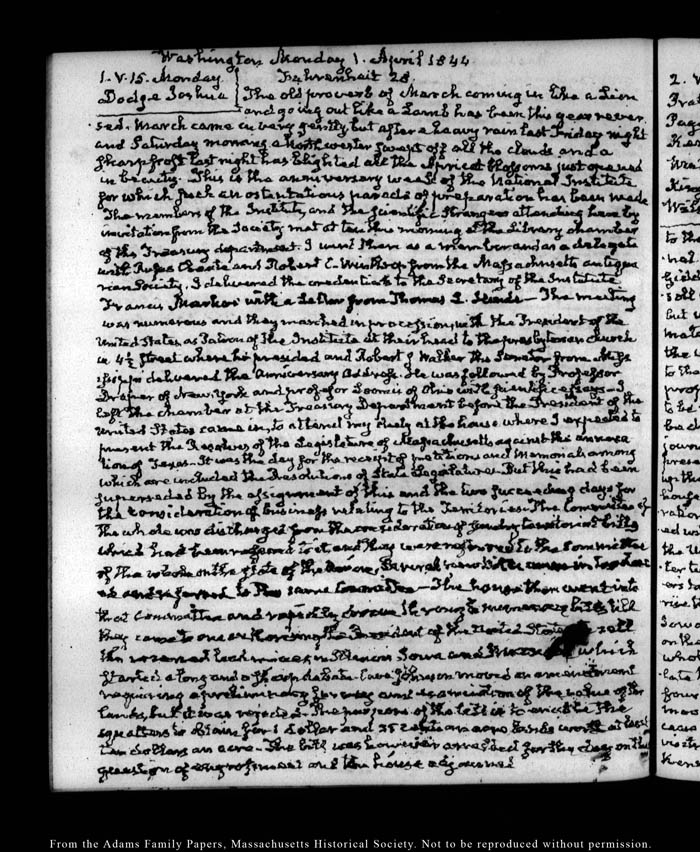 Washington Monday 1. April 1844
1. V. 15. Monday. Fahrenheit 28.
Dodge Joshua The old proverb of March coming in like a Lion
and going out like a Lamb has been this year rever
sed. March came in very gently but after a heavy rain last Friday night
and Saturday morning a Northwester swept off all the clouds and a
sharp frost last night has blighted all the Apricot blossoms just opened
in beauty. This is the anniversary week of the National Institute
for which such an ostentatious parade of preparation has been made
The members of the Institute, and the scientific Strangers attending here by
invitation from the Society met at ten this morning at the Library chamber
of the Treasury department. I went there as a member and as a delegate
with Rufus Choate and Robert C. Winthrop from the Massachusetts antiqua
rian Society. I delivered the credentials to the Secretary of the Institute
Francis Markoe with a Letter from Thomas L. The meeting
was numerous and they marched in procession, with the President of the
United States as Patron of the Institute at their head to the presbyterian Church
in 4½ Street where he presided and Robert J Walker the Senator from Miss
issippi delivered the anniversary address. He was followed by Professor
Draper of New York and professor Loomis of Ohio with scientific essays— I
left the chamber at the Treasury Department before the President of the
United States came in, to attend my duty at the house where I expected to
present the Resolves of the Legislature of Massachusetts against the annexa
tion of Texas. It was the day for the receipt of petitions and Memorials among
which are included the Resolutions of State Legislatures. But this had been
superseded by the assignment of this and the two succeeding days for
the consideration of business relating to the Territories. The Committee of
the whole was discharged from the consideration of sundry territorial bills
which had been referred to it and they were referred to the Committee
of the whole on the state of the Several
and referred to the same Committee— The house then went into
that Committee and rapidly through numerous bills till
they came to one authorizing the President of the United States to sell
the reserved lead mines in Illinois Iowa and which
started a long and sharp debate. Cave Johnson moved an amendment
requiring a preliminary survey and of the value of the
lands, but it was rejected. The purpose of the bill is to enable the
squatters to obtain for 1 dollar and 25 cents an acre lands worth at least
ten dollars an acre— The bill was however arrested for this day on the
question of and the house adjourned
From the Adams Family Papers, Massachusetts Historical Society. Not to be reproduced without permission.